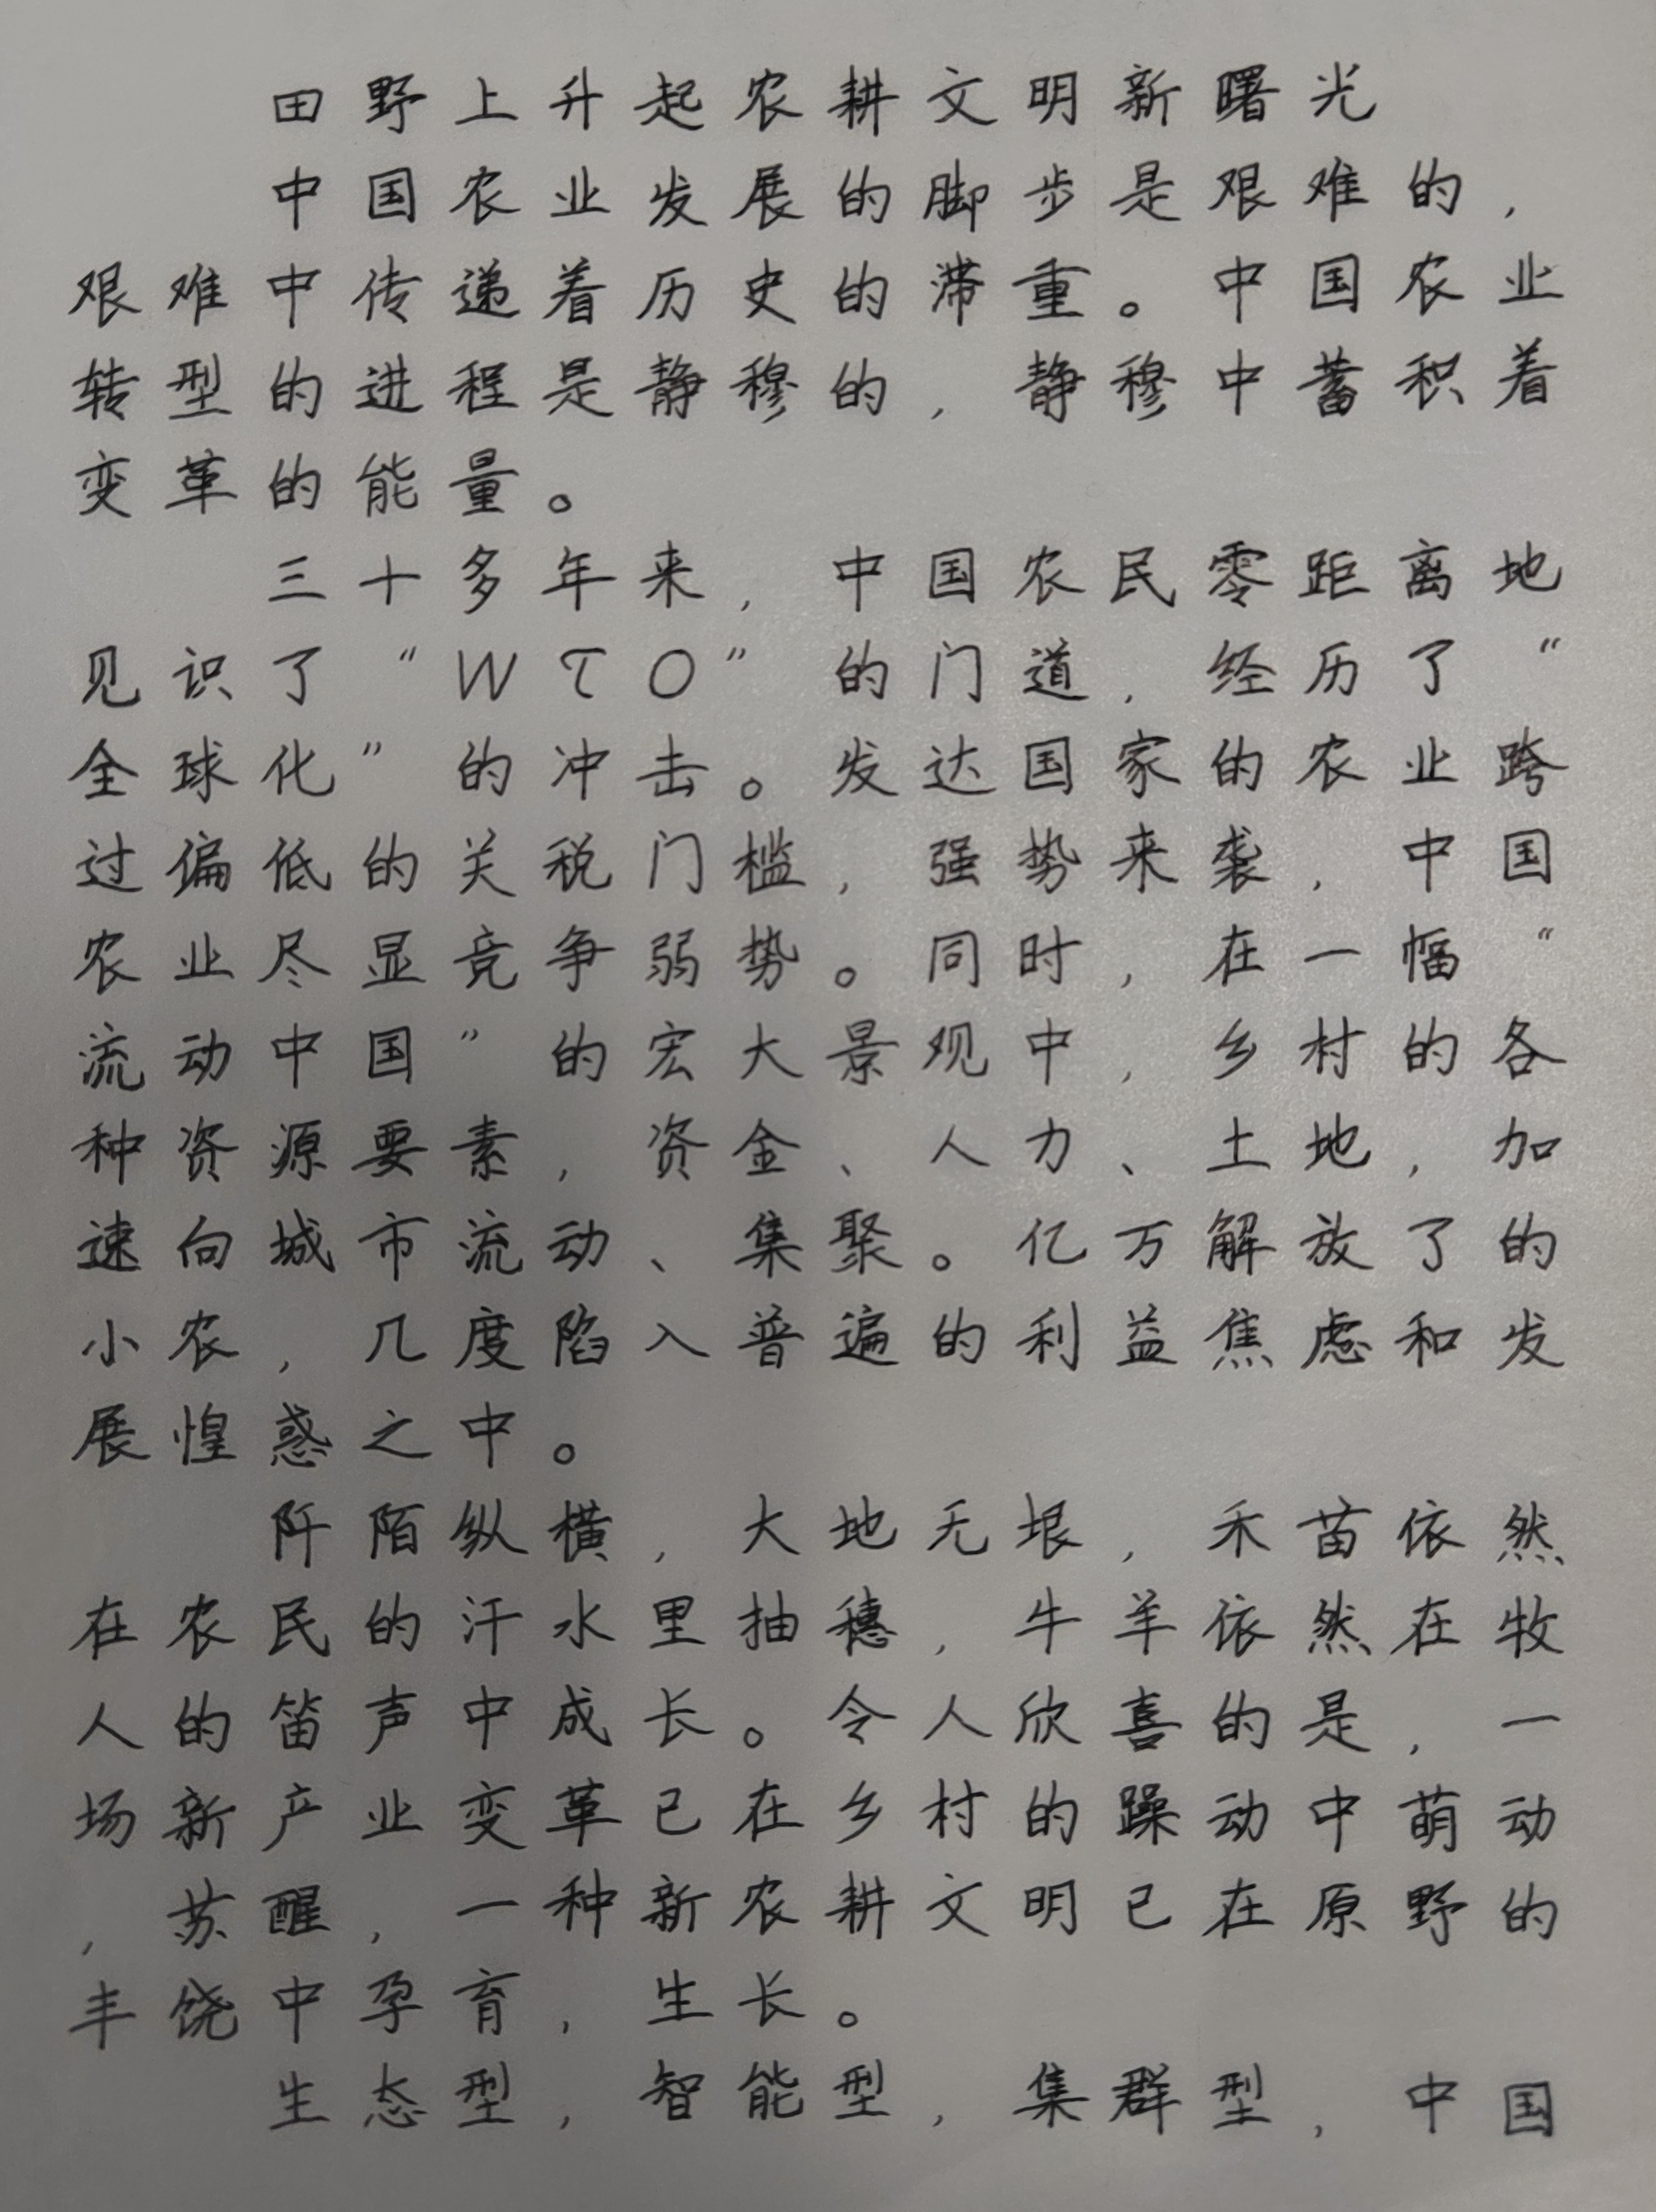 田野上升起农耕文明新曙光
中国农业发展的脚步是艰难的，
艰难中传递着历史的滞重。中国农业
转型的进程是静穆的，静穆中蓄积着
变革的能量。
三十多年来，中国农民零距离地
见识了“WTO”的门道，经历了“
全球化”的冲击。发达国家的农业跨
过偏低的关税门槛，强势来袭，中国
农业尽显竞争弱势。同时，在一幅“
流动中国”的宏大景观中，乡村的各
种资源要素，资金、人力、土地，加
速向城市流动、集聚。亿万解放了的
小农，几度陷入普遍的利益焦虑和发
展惶惑之中。
阡陌纵横，大地无垠，禾苗依然
在农民的汗水里抽穗，牛羊依然在牧
人的笛声中成长。令人欣喜的是，一
场新产业变革已在乡村的躁动中萌动
，苏醒，一种新农耕文明已在原野的
丰饶中孕育，生长。
生态型，智能型，集群型，中国